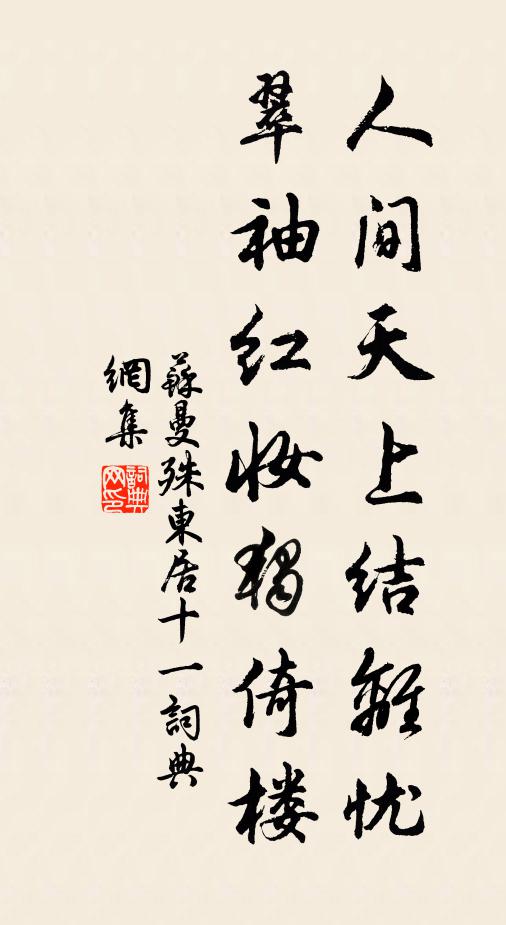 人间天上结离忧
翠袖红妆独倚楼
蘇曼殊東居十一詞典
網集
詞典
网印